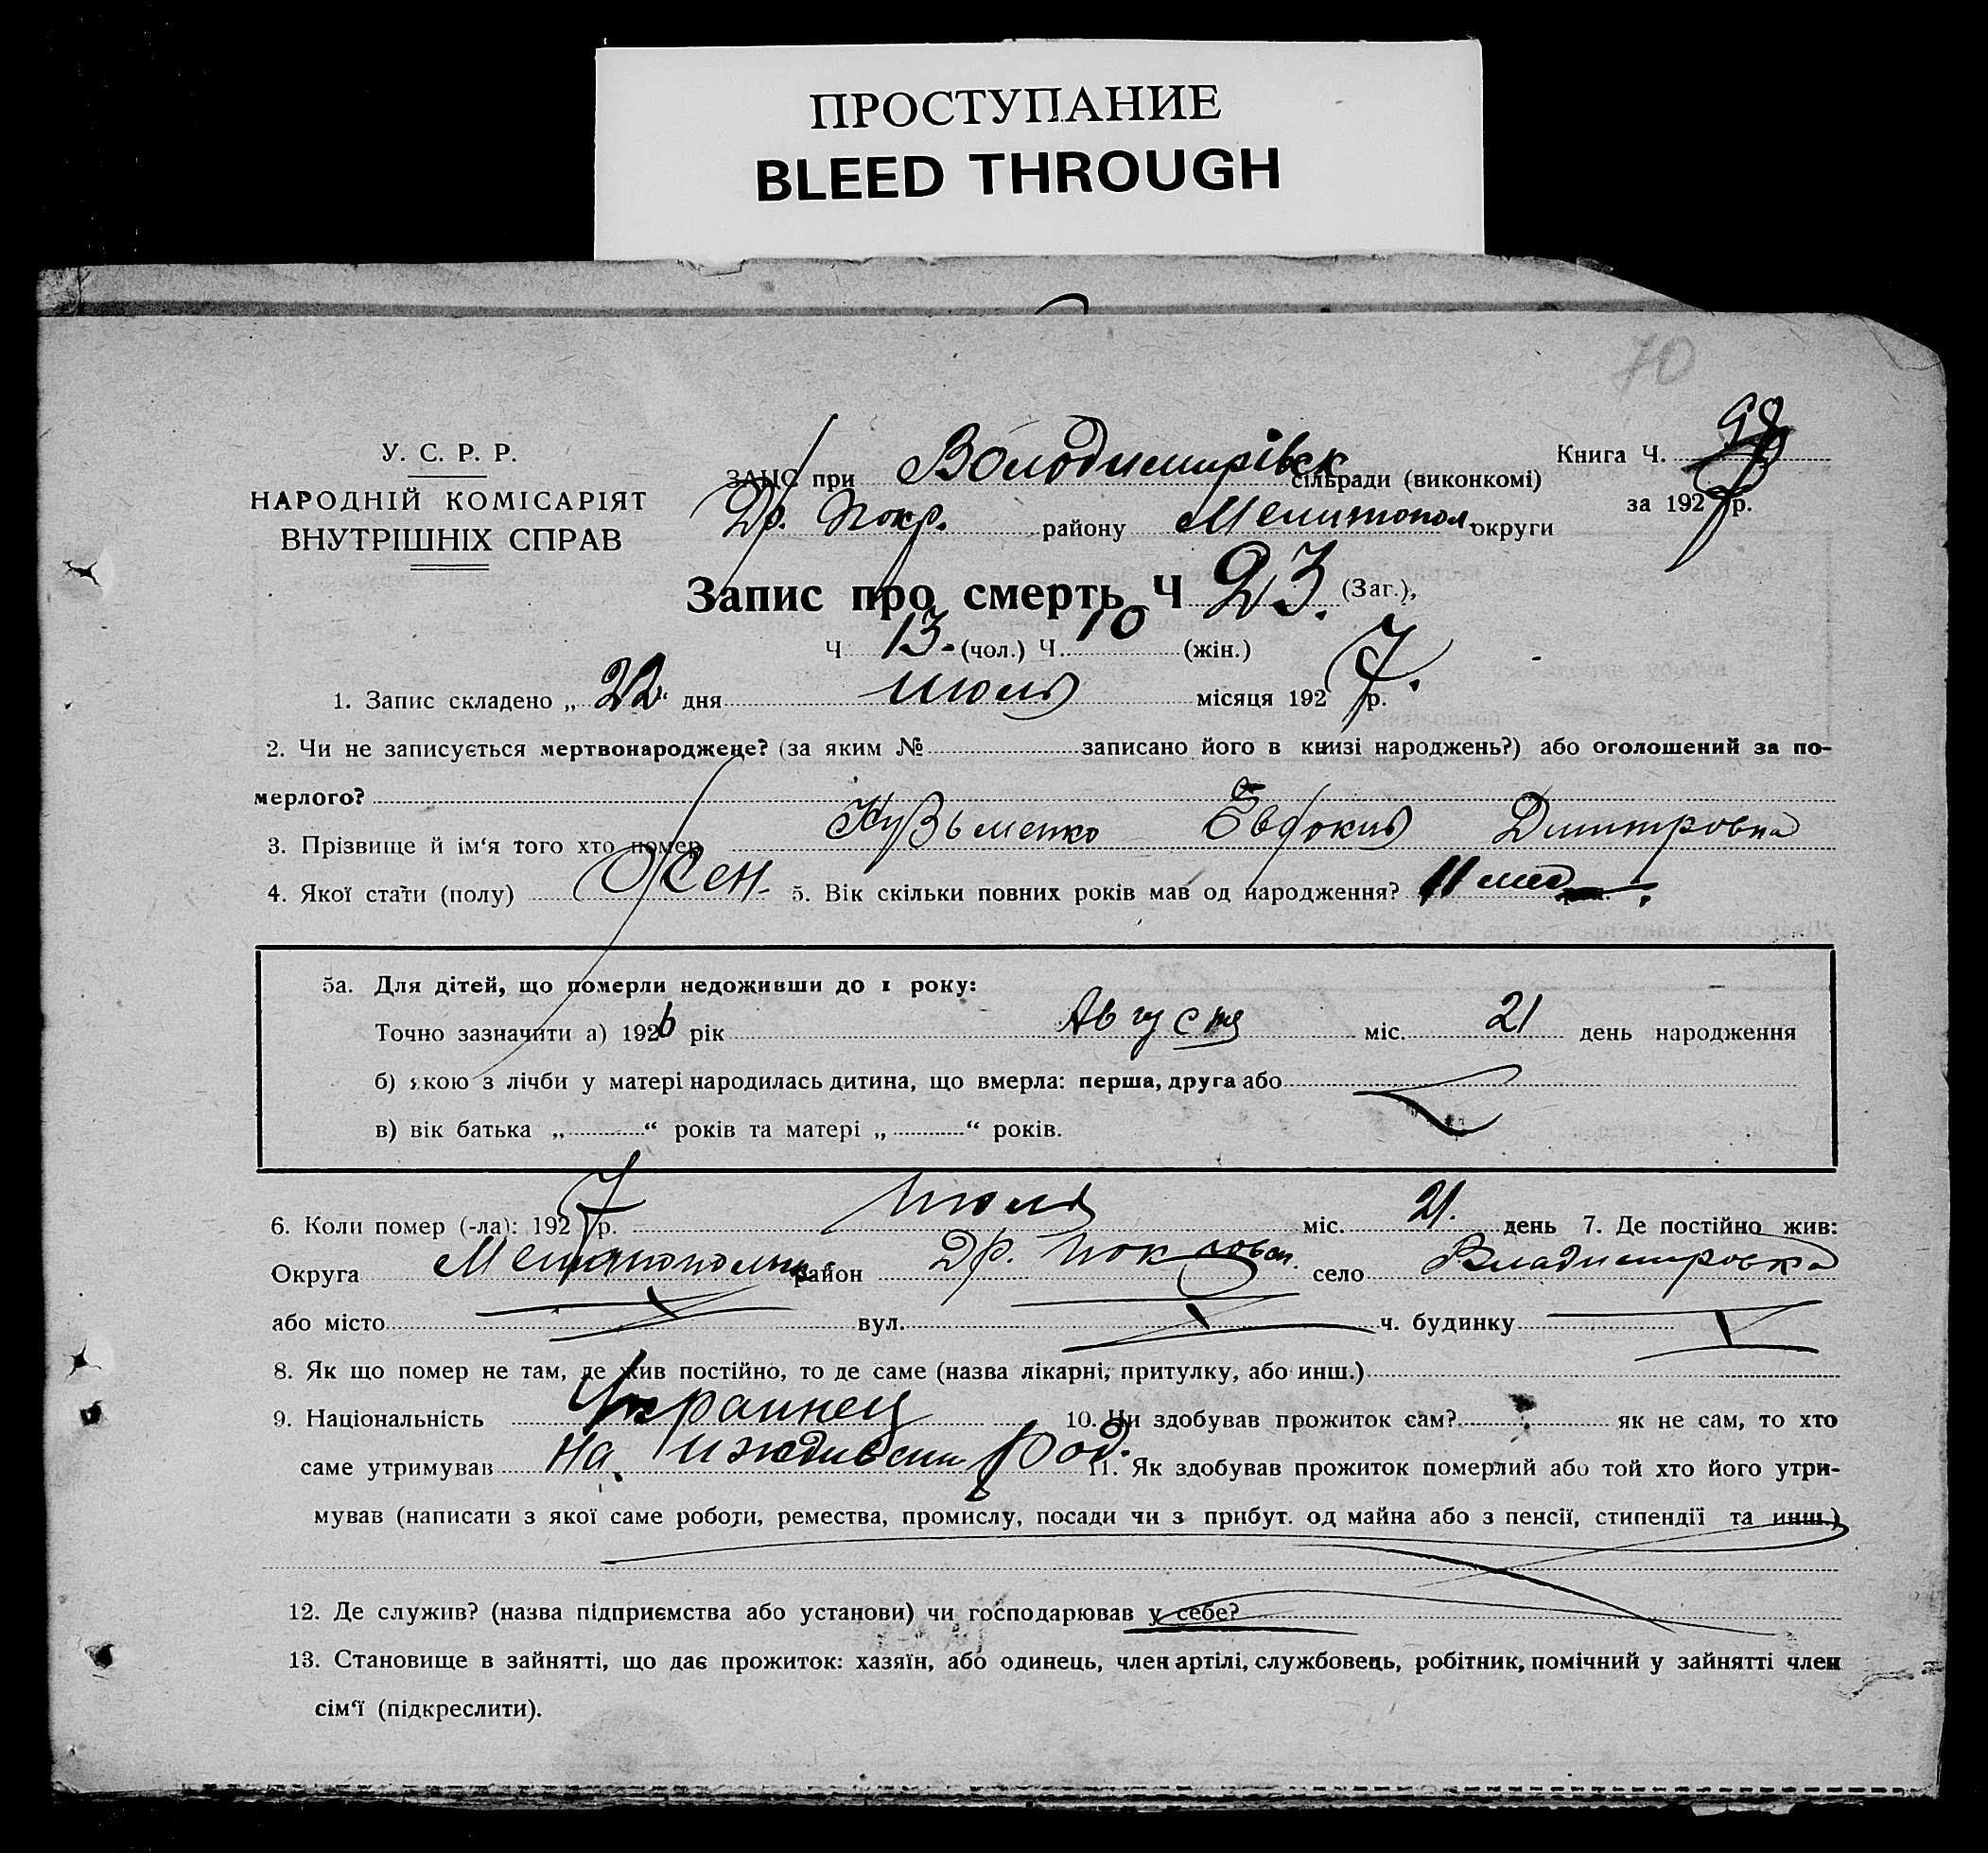 ПРОСТУПАНИЕ
BLEED THROUGH
70
У. С. Р. Р.
НАРОДНІЙ КОМІСАРІЯТ
ВНУТРІШНІХ СПРАВ
ЗАЦС при Володимирівск сільради (виконкомі)
Др. Покр. району Мелитопол. округи
Книга Ч.
за 1927 р.
Запис про смерть Ч 23. (Заг.),
Ч 13. (чол.) Ч. 10 (жін.)
1. Запис складено „ 22 “ дня июля місяця 1927 р.
2. Чи не записується мертвонароджене? (за яким № записано його в книзі народжень?) або оголошений за по-
мерлого?
3. Прізвище й ім‘я того хто помер Кузьменко Евдокия Дмитровна
4. Якої стати (полу) Жен. 5. Вік скільки повних років мав од народження? 11 мес.
5а. Для дітей, що померли недоживши до 1 року:
Точно зазначити а) 1926 рік Августа міс. 21 день народження
б) якою з лічби у матері народилась дитина, що вмерла: перша, друга або
в) вік батька „ “ років та матері „ “ років.
6. Коли помер (-ла): 1927 р. Июля міс. 21. день 7. Де постійно жив:
Округа район Др. село Владимировка
або місто вул. ч. будинку
8. Як що помер не там, де жив постійно, то де саме (назва лікарні, притулку, або инш.)
9. Національність Украинец 10. Чи здобував прожиток сам? як не сам, то хто
саме утримував На иждивении род. 11. Як здобував прожиток померлий або той хто його утри-
мував (написати з якої саме роботи, ремества, промислу, посади чи з прибут. од майна або з пенсії, стипендії та инш.)
12. Де служив? (назва підприємства або установи) чи господарював у себе?
13. Становище в зайнятті, що дає прожиток: хазяїн, або одинець, член артілі, службовець, робітник, помічний у зайнятті член
сім‘ї (підкреслити).